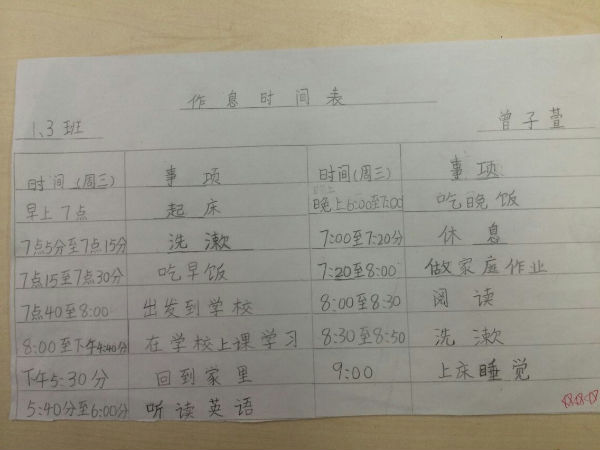 作息时间表
1、3班 曾子萱
时间(周三) 事项 时间(周三) 事项
早上7点 起床 晚上6:00至7:00 吃晚饭
7点5分至7点15分 洗漱 7:00至7:20分 休息
7点15至7点30分 吃早饭 7:20至8:00 做家庭作业
7点40至8:00 出发到学校 8:00至8:30 阅读
8:00至下午4:40分 在学校上课学习 8:30至8:50 洗漱
下午5:30分 回到家里 9:00 上床睡觉
5:40分至6:00分 听读英语